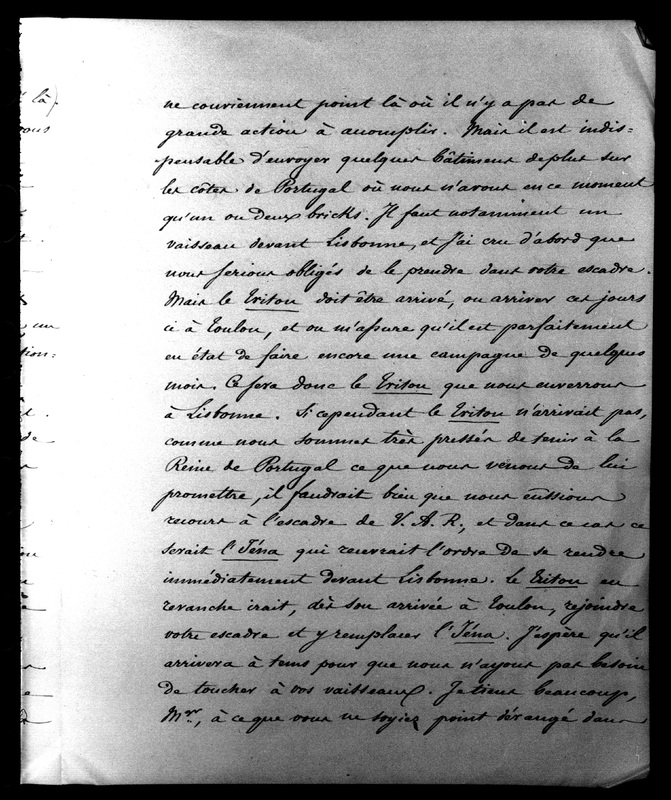 là).
vous
un
tion=
t.
de
ne conviennent point là où il n'y a pas de
grande action à accomplir. Mais il est indis=
pensable d'envoyer quelques bâtimens de plus sur
les côtes de Portugal où nous n'avons en ce moment
qu'un ou deux bricks. Il faut notamment un
vaisseau devant Lisbonne, et j'ai cru d'abord que
nous serions obligés de le prendre dans votre escadre.
Mais le Triton doit être arrivé, ou arriver ces jours
ci à Toulon, et on m'assure qu'il est parfaitement
en état de faire encore une campagne de quelques
mois. Ce sera donc le Triton que nous enverrons
à Lisbonne. Si cependant le Triton n'arrivait pas,
comme nous sommes très pressés de tenir à la
Reine de Portugal ce que nous venons de lui
promettre, il faudrait bien que nous eussions
recours à l'escadre de V. A. R., et dans ce cas ce
serait l'Iéna qui recevrait l'ordre de se rendre
immédiatement devant Lisbonne. Le Triton en
revanche irait, dès son arrivée à Toulon, rejoindre
votre escadre et y remplacer l'Iéna. J'espère qu'il
arrivera à tems pour que nous n'ayons pas besoin
de toucher à vos vaisseaux. Je tiens beaucoup,
Mgr, à ce que vous ne soyiez point dérangé dans